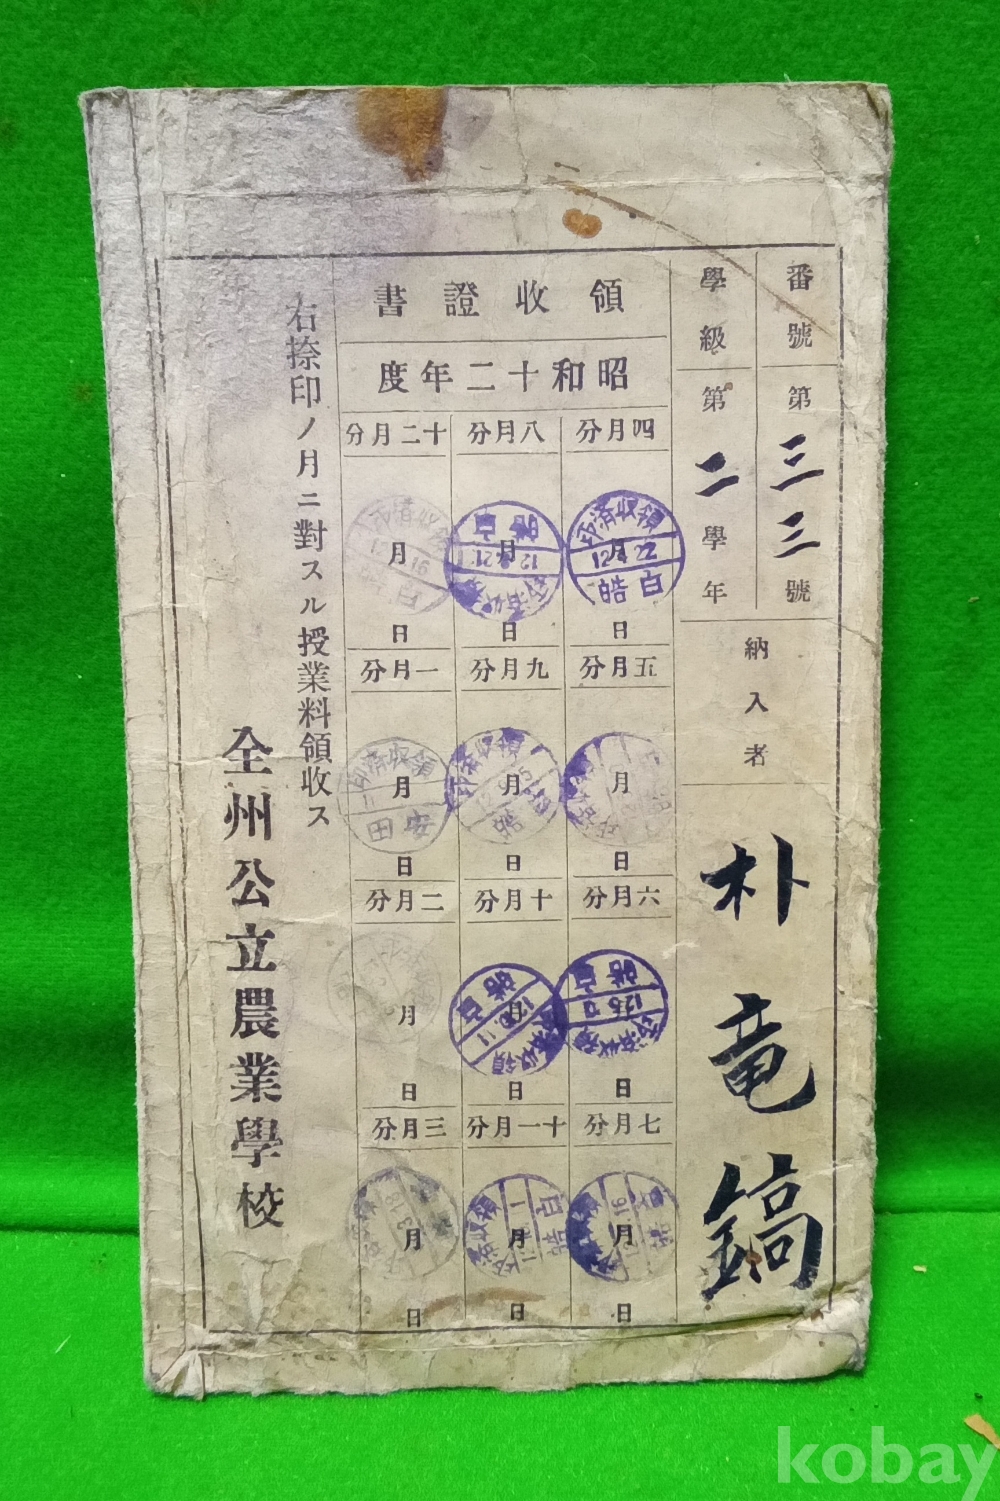 番號 第三三號
學級 第二學年
納入者 朴竜鎬
領收證書
昭和十二年度
四月分
領收済印
12.4.22
白皓
月
日
五月分
月
日
六月分
領收済印
白皓
日
七月分
月
日
八月分
領收済印
白皓
月
日
九月分
領收済印
月
日
十月分
領收済印
白皓
月
日
十一月分
領收済印
白皓
月
日
十二月分
月
日
一月分
領收済印
安田
月
日
二月分
月
日
三月分
月
日
右捺印ノ月ニ對スル授業料領收ス
全州公立農業學校
kobay